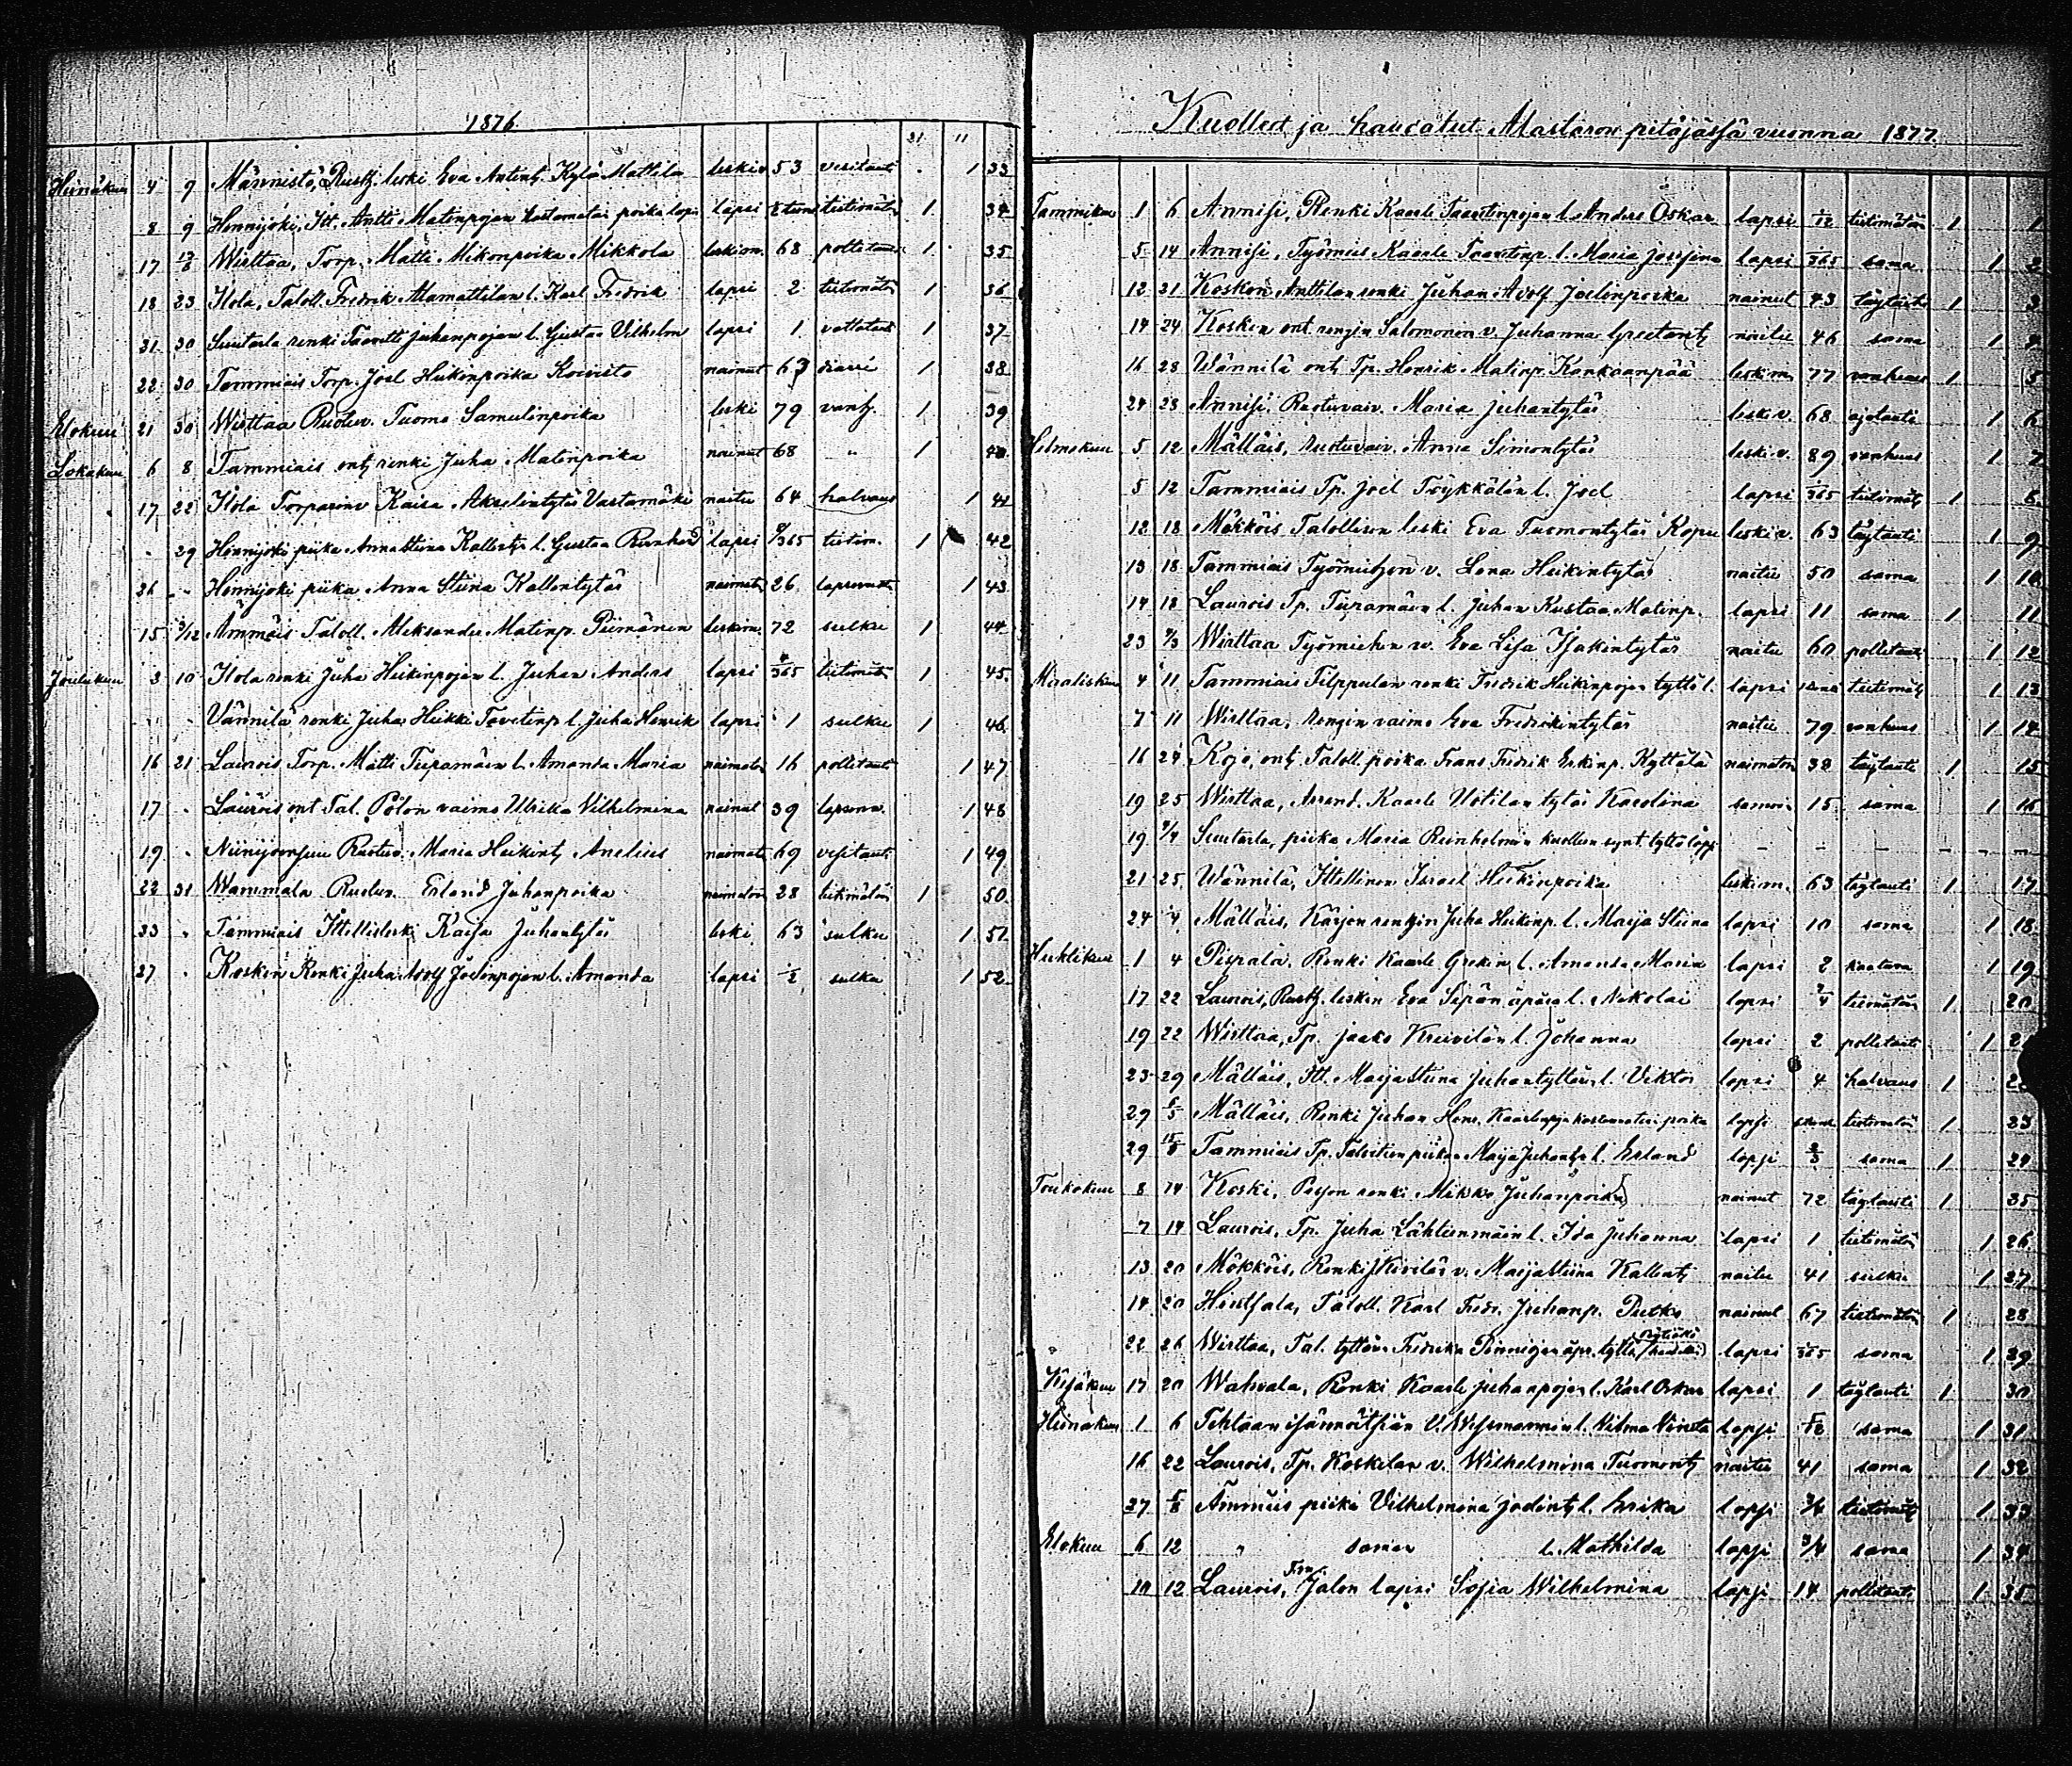 1876.
31 11
Heinäkuu 4 9 Männistö, Rustj. leski Eva Antintj. Kylä Mattila leskiv. 53 vesitauti 1 33
8 9 Hennijoki, Itt. Antti Matinpojan kastamatoin poika lapsi lapsi tietämätöin 1 34
17 Wirttaa, Torp. Matti Mikonpoika Mikkola leskim. 68 polletauti 1 35
18 23 Ilola, Taloll. Fredrik Alamattilan l. Karl Fredrik lapsi 2 tietämätöin 1 36
21 30 Suutarla renki Taavetti Juhanpojan l. Gustaa Vilhelm lapsi 1 1 37
22 30 Tammiais Torp. Joel Heikinpoika Koivisto nainut 63 diarré 1 38
Elokuu 21 30 Wirttaa Ruotuv. Tuomo Samulinpoika leski 79 vanh. 1 39
Lokakuu 6 8 Tammiais entj renki Juha Matinpoika nainut 68 " 1 40
17 22 Ilola Torparinv Kaisa Akselintytär Vastamäki naitu 64 halvaus 1 41
" 29 Hennijoki piika Anna Stiina Kallentyt l. Gustaa Reinhard lapsi /365 tietäm. 1 42
26 " Hennijoki piika Anna Stiina Kallentytär naimatn 26 lapsenvuode 1 43
15 3/12 Ämmäis Taloll. Aleksander Matinp. Piimänen leskim. 72 sulku 1 44
Joulukuu 3 10 Ilola renki Juha Heikinpojan l. Juhan Anders lapsi /365 tietämät 1 45.
" " Vännilä renki Juha Heikki Tavetinp l. Juha Henrik lapsi 1 sulku 1 46.
16 21 Laurois Torp. Matti Tupamäen l. Amanda Maria naimaton 16 polletauti 1 47
17 " Laurois ent Tal. Pölön vaimo Ulrika Vilhelmina nainut 39 lapsenv. 1 48
19 " Niinijoensuu Ruotuv. Maria Heikintj Anelius naimato 69 vesitauti 1 49
22 31 Wammala Ruotuv. Erland Juhanpoika naimatoin 28 tietämätöin 1 50.
23 " Tammiais Ittellisleski Kaisa Juhantytär leski 63 sulku 1 51
27 " Koskin Renki Juha Adolf Joelinpojan l. Amanda lapsi 1/2 sulku 1 52
Kuolleet ja haudatut Mastaron pitäjässä vuonna 1877.
Tammikuu 1 6 Annisi, Renki Kaarle Taavetinpojan l. Anders Oskar lapsi /12 tietämätöin 1 1
5 14 Annisi, Työmies Kaarle Taavetinp. l. Maria Josefina lapsi /365 sama 1 2
12 21 Koskin Anttilan renki Juhan Adolf Joelinpoika nainut 43 täytauti 1 3
14 24 Koskin ent rengin Salomonen v. Juhanna Greetantj naitu 46 sama 1 4
16 28 Wännilä entj Tp. Henrik Matinp. Kankaanpää leskim. 77 vanhuus 1 5
24 28 Annisi, Ruotuvaiv. Maria Juhantytär leskiv. 68 ajotauti 1 6
Helmikuu 5 12 Mälläis, ruotuvaiv. Anna Simontytär leskiv. 89 vanhuus 1 7
5 12 Tammiais Tp. Joel Töykkälän l. Joel lapsi /365 tietämät 1 8
12 18 Mökköis Talollisen leski Eva Tuomontytär Kopu leskiv. 63 täytauti 1 9
13 18 Tammiais Työmiehen v. Lena Heikintytär naitu 50 sama 1 10
14 18 Laurois Tp. Tupamäen l. Juhan Kustaa Matinp. lapsi 11 sama 1 11
23 4/3 Wirttaa Työmiehen v. Eva Lisa Isakintytär naitu 60 polletauti 1 12
Maalisku 4 11 Tammiais Filppulan renki Fredrik Heikinpojan tyttö l. lapsi tietämät 1 13
7 11 Wirttaa, rengin vaimo Eva Fredrikintytär naitu 79 vanhuus 1 14
16 24 Kojo, entj Taloll. poika Frans Fredrik Erkinp. Kyttälä naimaton 38 täytauti 1 15
19 25 Wirttaa, Arrend. Kaarle Uotilan tytär Karolina 15 sama 1 16
19 Suutarla, piika Maria Reinholmin kuollena synt. tyttö lapsi – – – – – –
21 25 Wännilä, Ittellinen Israel Heikinpoika leskim. 63 täytauti 1 17
24 Mälläis, Kärjen rengin Juha Heikinp. l. Maija Stiina lapsi 10 sama 1 18
Huhtikuu 1 4 Pispala, Renki Kaarle l. Amanda Maria lapsi 2 1 19
17 22 Laurois, Rustj. lesken Eva Sipän äpärä l. Nikolai lapsi 2/4 tietämätön 1 20
19 22 Wirttaa, Tp. Jaako Kreivilän l. Johanna lapsi 2 polletauti 1 2
23 29 Mälläis, Itt. Maija Stiina Juhantyttären l. Viktor lapsi 4 halvaus 1 2
29 6/5 Mälläis, Renki Juhan Henr. Kaarlenpoja kastamatoin poika lapsi tietämätöin 1 23
29 Tammiais Tp. Talvitien piikan Maija Juhantyt l. Erland lapsi 2/3 sama 1 24
Toukokuu 8 14 Koski, Perjon renki Mikko Juhanpoika nainut 72 täytauti 1 25
7 14 Laurois, Tp. Juha Lähteenmäen l. Ida Juhanna lapsi 1 tietämätön 1 26
13 20 Mökköis, Renki v. Maija Stiina Kallentj naitu 41 sulku 1 27
14 20 Hirsjala, Taloll. Karl Fredr. Juhanp. nainut 67 tietämätön 1 28
22 26 Wirttaa, Tal. tyttären Fredrika äpr. tyttö lapsi /365 sama 1 29
Kesäkuu 17 20 Wahvala, Renki Kaarle Juhanpojan l. Karl Oskar lapsi 1 täytauti 1 30
Heinäkuu 1 6 Tehtaan isännöitsiän l. Hilma lapsi /12 sama 1 31
16 22 Laurois, Tp. Koskelan v. Wilhelmina Tuomontj naitu 41 sama 1 32
27 5/8 Ämmäis piika Vilhelmina Joelintj l. Erika lapsi 3/4 tietämät 1 33
Elokuu 6 12 " saman l. Mathilda lapsi 3/4 sama 1 34
10 12 Laurois, Jalon lapsi Sofia Wilhelmina lapsi 14 polletauti 1 35